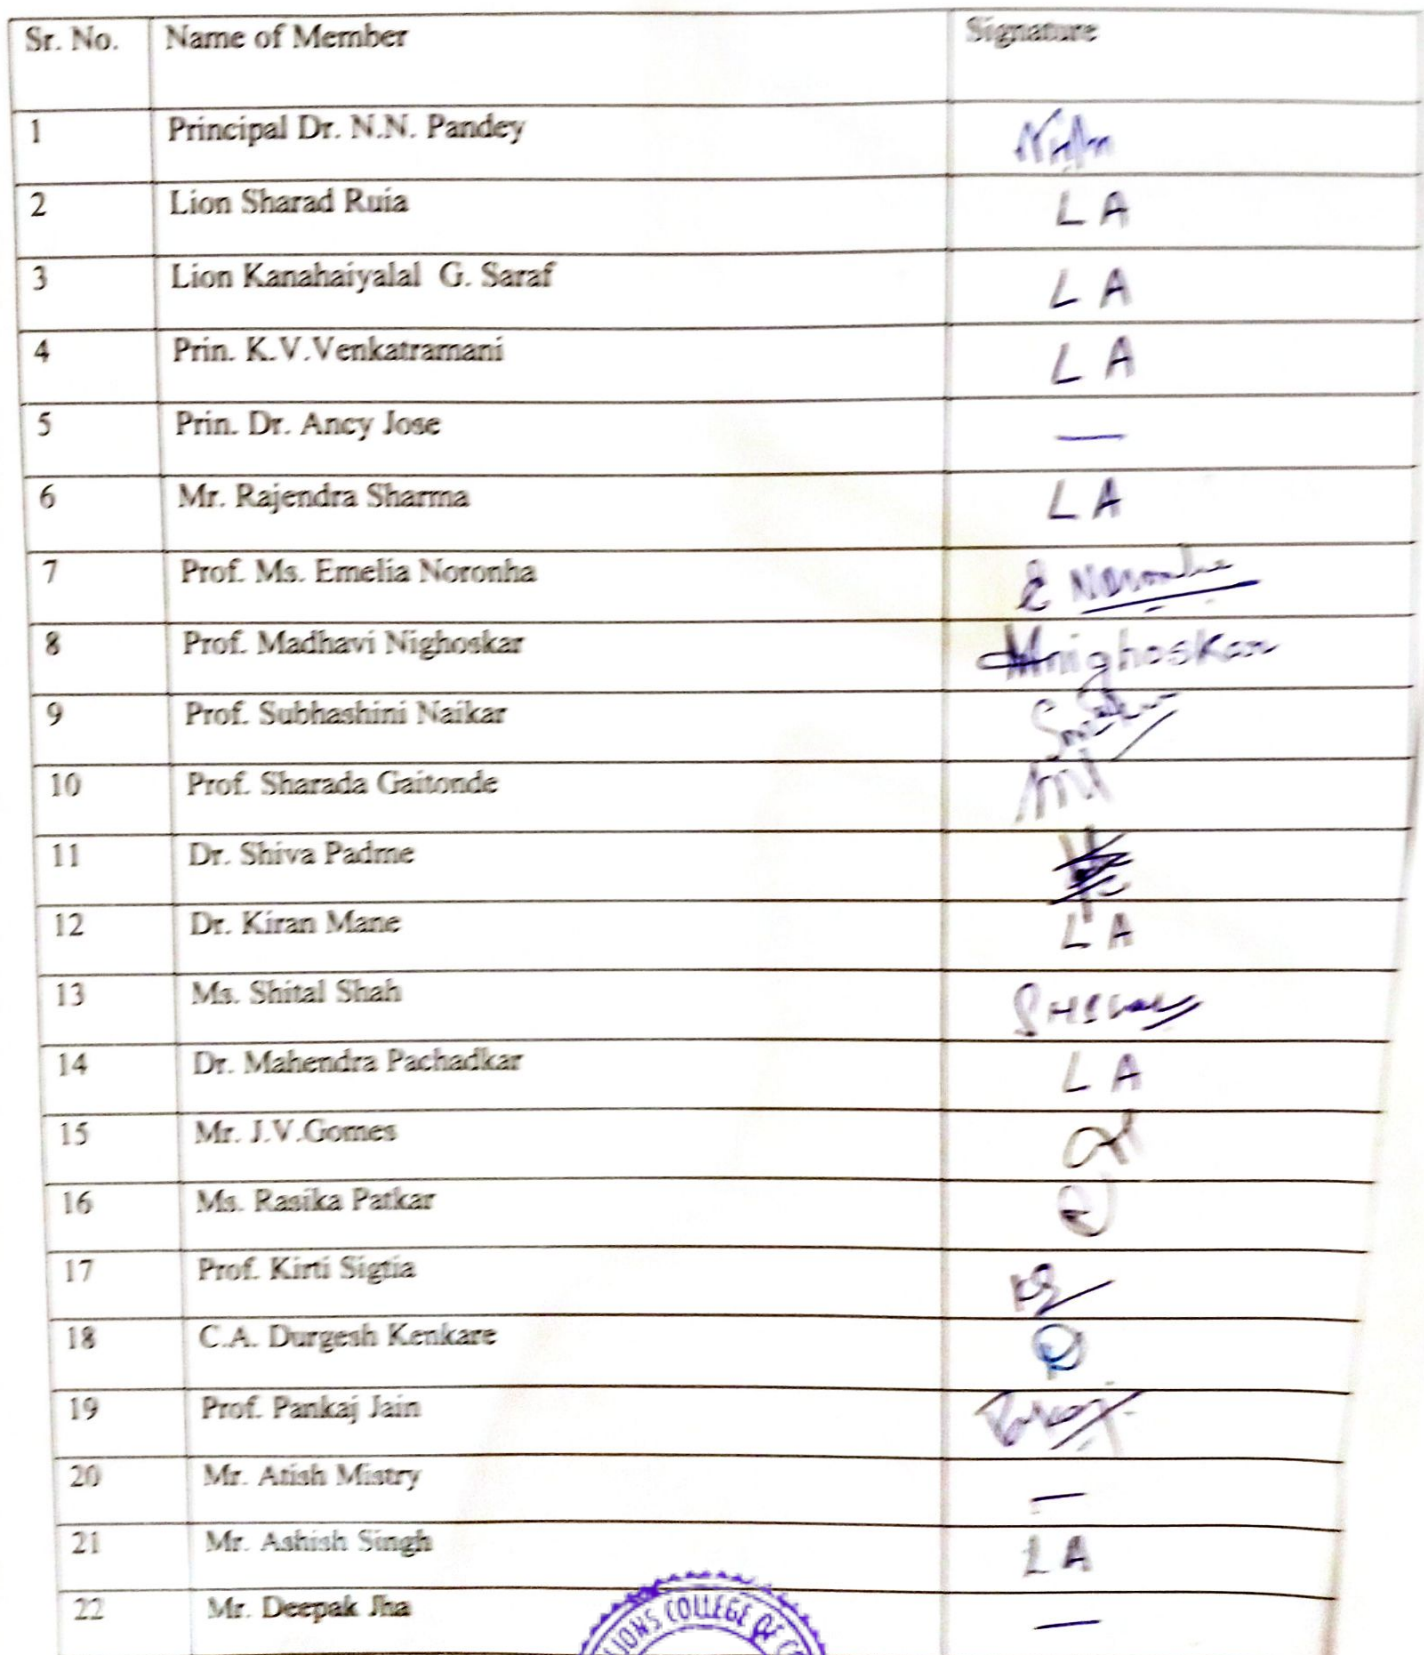 Sr. No. Name of Member Signature
1 Principal Dr. N.N. Pandey
2 Lion Sharad Ruia L A
3 Lion Kanahaiyalal G. Saraf L A
4 Prin. K.V.Venkatramani L A
5 Prin. Dr. Ancy Jose —
6 Mr. Rajendra Sharma L A
7 Prof. Ms. Emelia Noronha E Noronha
8 Prof. Madhavi Nighoskar Mnighoskar
9 Prof. Subhashini Naikar
10 Prof. Sharada Gaitonde
11 Dr. Shiva Padme
12 Dr. Kiran Mane L A
13 Ms. Shital Shah
14 Dr. Mahendra Pachadkar L A
15 Mr. J.V.Gomes
16 Ms. Rasika Patkar
17 Prof. Kirti Sigtia
18 C.A. Durgesh Kenkare
19 Prof. Pankaj Jain
20 Mr. Atish Mistry —
21 Mr. Ashish Singh L A
22 Mr. Deepak Jha —
LIONS COLLEGE OF